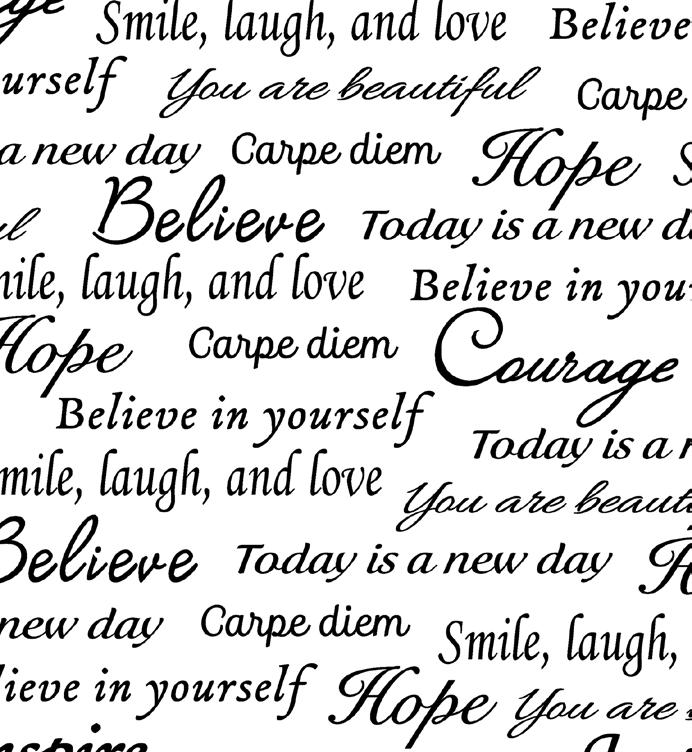 ge Smile, laugh, and love Believe
urself You are beautiful Carpe
a new day Carpe diem Hope S
ul Believe Today is a new da
mile, laugh, and love Believe in your
Hope Carpe diem Courage
Believe in yourself
Today is a n
mile, laugh, and love You are beauti
Believe Today is a new day H
new day Carpe diem Smile, laugh,
lieve in yourself Hope You are
nspire